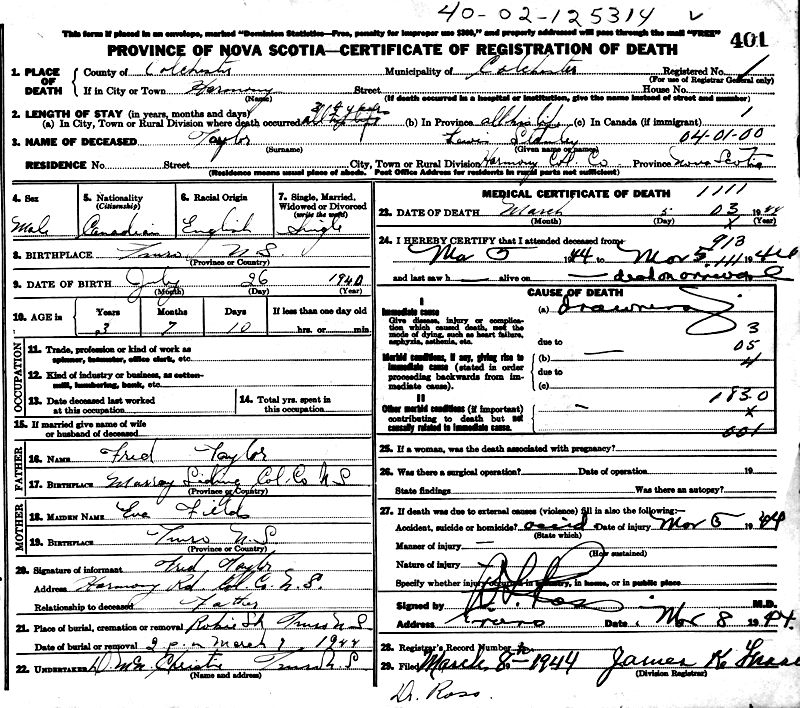 40-02-125314
This form if placed in an envelope, marked "Dominion Statistics—Free, penalty for improper use $300," and properly addressed will pass through the mail "FREE"
PROVINCE OF NOVA SCOTIA—CERTIFICATE OF REGISTRATION OF DEATH
401
1. PLACE OF DEATH
County of Colchester Municipality of Colchester Registered No. 1
(For use of Registrar General only)
If in City or Town Harmony Street House No.
(Name) (If death occurred in a hospital or institution, give the name instead of street and number)
2. LENGTH OF STAY (in years, months and days)
(a) In City, Town or Rural Division where death occurred all his life (b) In Province all his life (c) In Canada (if immigrant) 1
3. NAME OF DECEASED Taylor Stanley 04-01-00
(Surname) (Given name or names)
RESIDENCE No. Street City, Town or Rural Division Harmony Col. Co Province Nova Scotia
(Residence means usual place of abode. Post Office Address for residents in rural parts not sufficient)
4. Sex
Male
5. Nationality
(Citizenship)
Canadian
6. Racial Origin
English
7. Single, Married, Widowed or Divorced
(write the word)
Single
8. BIRTHPLACE Truro N.S.
(Province or Country)
9. DATE OF BIRTH July 26 1940
(Month) (Day) (Year)
10. AGE in
Years Months Days If less than one day old
3 7 10 hrs. or min.
OCCUPATION
11. Trade, profession or kind of work as
spinner, teamster, office clerk, etc.
12. Kind of industry or business, as cotton-
mill, lumbering, bank, etc.
13. Date deceased last worked
at this occupation
14. Total yrs. spent in
this occupation
15. If married give name of wife
or husband of deceased
FATHER
16. NAME Fred Taylor
17. BIRTHPLACE Murray Siding Col. Co N S
(Province or Country)
MOTHER
18. MAIDEN NAME Eva Fields
19. BIRTHPLACE Truro N.S.
(Province or Country)
20. Signature of informant Fred Taylor
Address Harmony Rd Col. Co. N.S.
Relationship to deceased Father
21. Place of burial, cremation or removal Robie St Truro N S
Date of burial or removal 2 p.m March 7, 1944
22. UNDERTAKER Christie Truro N.S
(Name and address)
MEDICAL CERTIFICATE OF DEATH 1111
23. DATE OF DEATH March 5 03 1944
(Month) (Day) (Year)
913
24. I HEREBY CERTIFY that I attended deceased from
Mar 5 1944 to Mar 5 1944
and last saw h alive on — dead on arrival
CAUSE OF DEATH
I
Immediate cause
Give disease, injury or complication which caused death, not the mode of dying, such as heart failure, asphyxia, asthenia, etc.
(a) drowning
3
due to
05
Morbid conditions, if any, giving rise to immediate cause (stated in order proceeding backwards from immediate cause).
(b) —
4
due to
(c)
II
183.0
Other morbid conditions (if important) contributing to death but not causally related to immediate cause.
x
001
25. If a woman, was the death associated with pregnancy?
26. Was there a surgical operation? Date of operation 19
State findings Was there an autopsy?
27. If death was due to external causes (violence) fill in also the following:—
Accident, suicide or homicide? accid Date of injury Mar 5 1944
(State which)
Manner of injury —
(How sustained)
Nature of injury
Specify whether injury occurred in industry, in home, or in public place
Signed by Ross M.D.
Address Truro Date Mar 8 1944.
28. Registrar's Record Number
29. Filed March 8 1944 James K
(Division Registrar)
Dr. Ross.